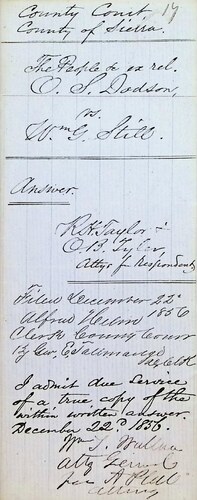 County Court 17
County of Sierra.
The People &c ex rel.
O. S. Dodson,
vs.
Wm G. Still.
Answer.
R. H. Taylor &
O. B. Tyler,
Attys f Respondent
Filed December 22d
1856
Alfred Helm
Clerk County Court
By Geo. E.
I admit due service
of a true copy of the
within written answer.
December 22d. 1856.
Wm S.
atty
per